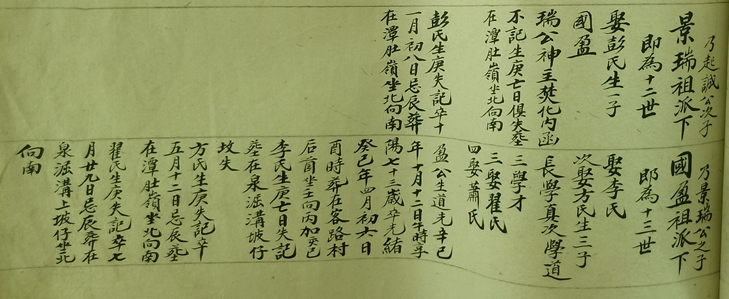 乃起誠公次子
景瑞祖派下
即為十二世
娶彭氏生一子
國盈
瑞公神主焚化內函
不記生庚亡日俱失墓
在潭肚嶺坐北向南
彭氏生庚失記卒十
一月初八日忌辰葬
在潭肚嶺坐北向南
乃景瑞公之子
國盈祖派下
即為十三世
娶李氏
次娶方氏生三子
長學真次學道
三學才
三娶翟氏
四娶蕭氏
盈公生道光辛巳
年十月十二日午時享
陽七十三歲卒光緒
癸巳年四月初六日
酉時葬在客路村
后首坐壬向丙加癸巳
李氏生庚亡日失記
葬在泉漏溝坡仔
坟失
方氏生庚失記卒
五月十二日忌辰墓
在潭肚嶺坐北向南
翟氏生庚失記卒七
月廿九日忌辰葬在
泉漏溝上坡仔坐北
向南